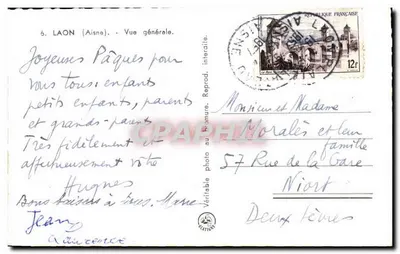 6. LAON (Aisne). - Vue générale.
Joyeuses Pâques pour
vous tous: enfants
petits enfants, parents
et grands-parents
Très fidèlement et
affectueusement vôtre
Hugues
Bons baisers à tous. Marie
Jean
Véritable photo au bromure. Reprod. interdite.
REPUBLIQUE FRANÇAISE
12F
Monsieur et Madame
Moralès et leur
famille
57 Rue de la Gare
Niort
Deux Sèvres